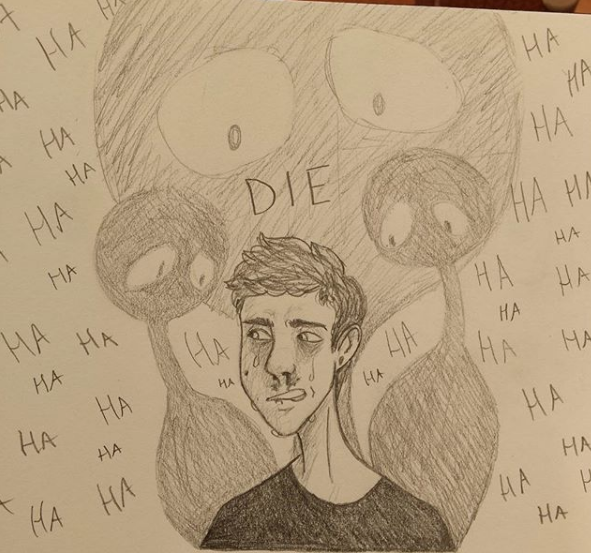 HA
HA HA
HA HA
HA HA
HA
DIE
HA HA
HA HA
HA
HA HA HA
HA
HA HA HA HA HA HA
HA HA HA
HA HA
HA HA
HA
HA HA
HA HA